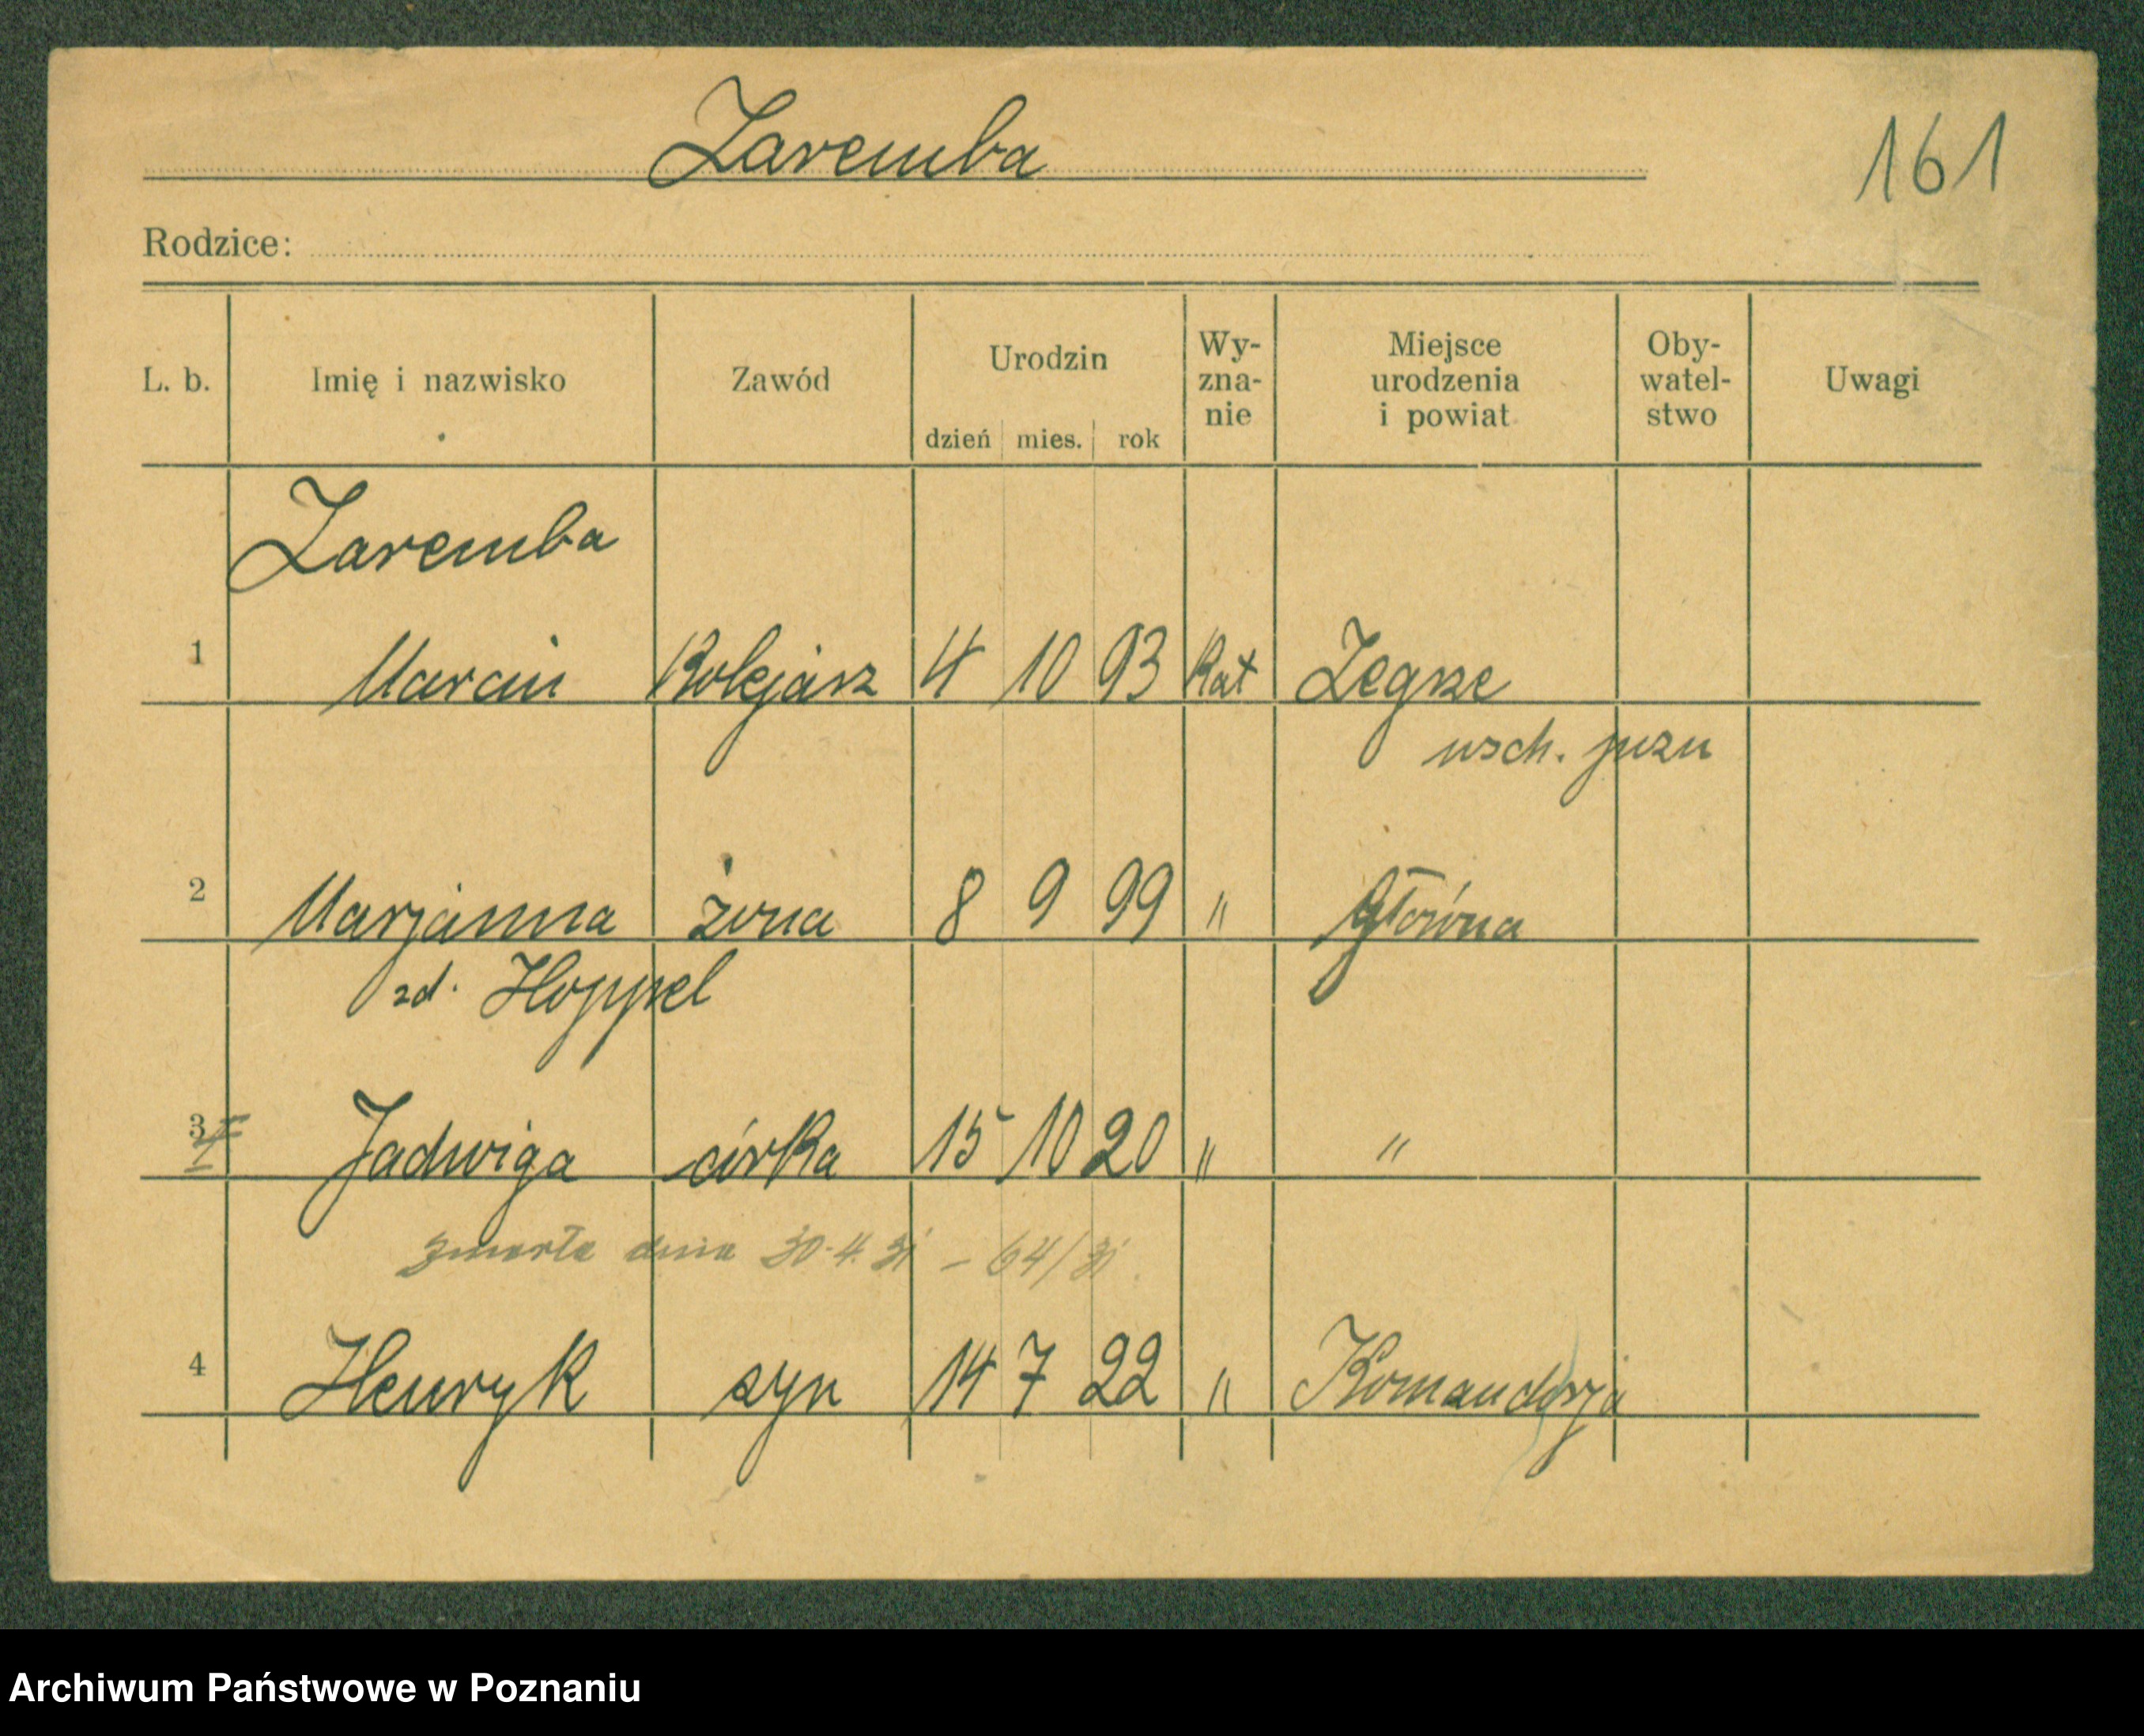 Zaremba
161
Rodzice:
L. b. Imię i nazwisko Zawód Urodzin dzień mies. rok Wy-zna-nie Miejsce urodzenia i powiat Oby-watel-stwo Uwagi
Zaremba
1 Marcin Kolejarz 4 10 93 Kat Zegrze
wsch. pozn
2 Marjanna żona 8 9 99 " Główna
zd. Hoppel
3 Jadwiga córka 15 10 20 " "
zmarła dnia 30.4.31 – 64/31
4 Henryk syn 14 7 22 " Komandorja
Archiwum Państwowe w Poznaniu